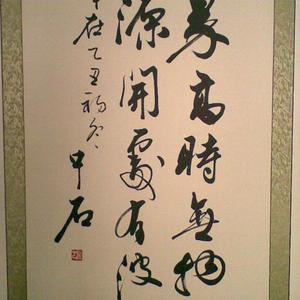 界高時無物
源開處有波
在乙丑初冬
中石